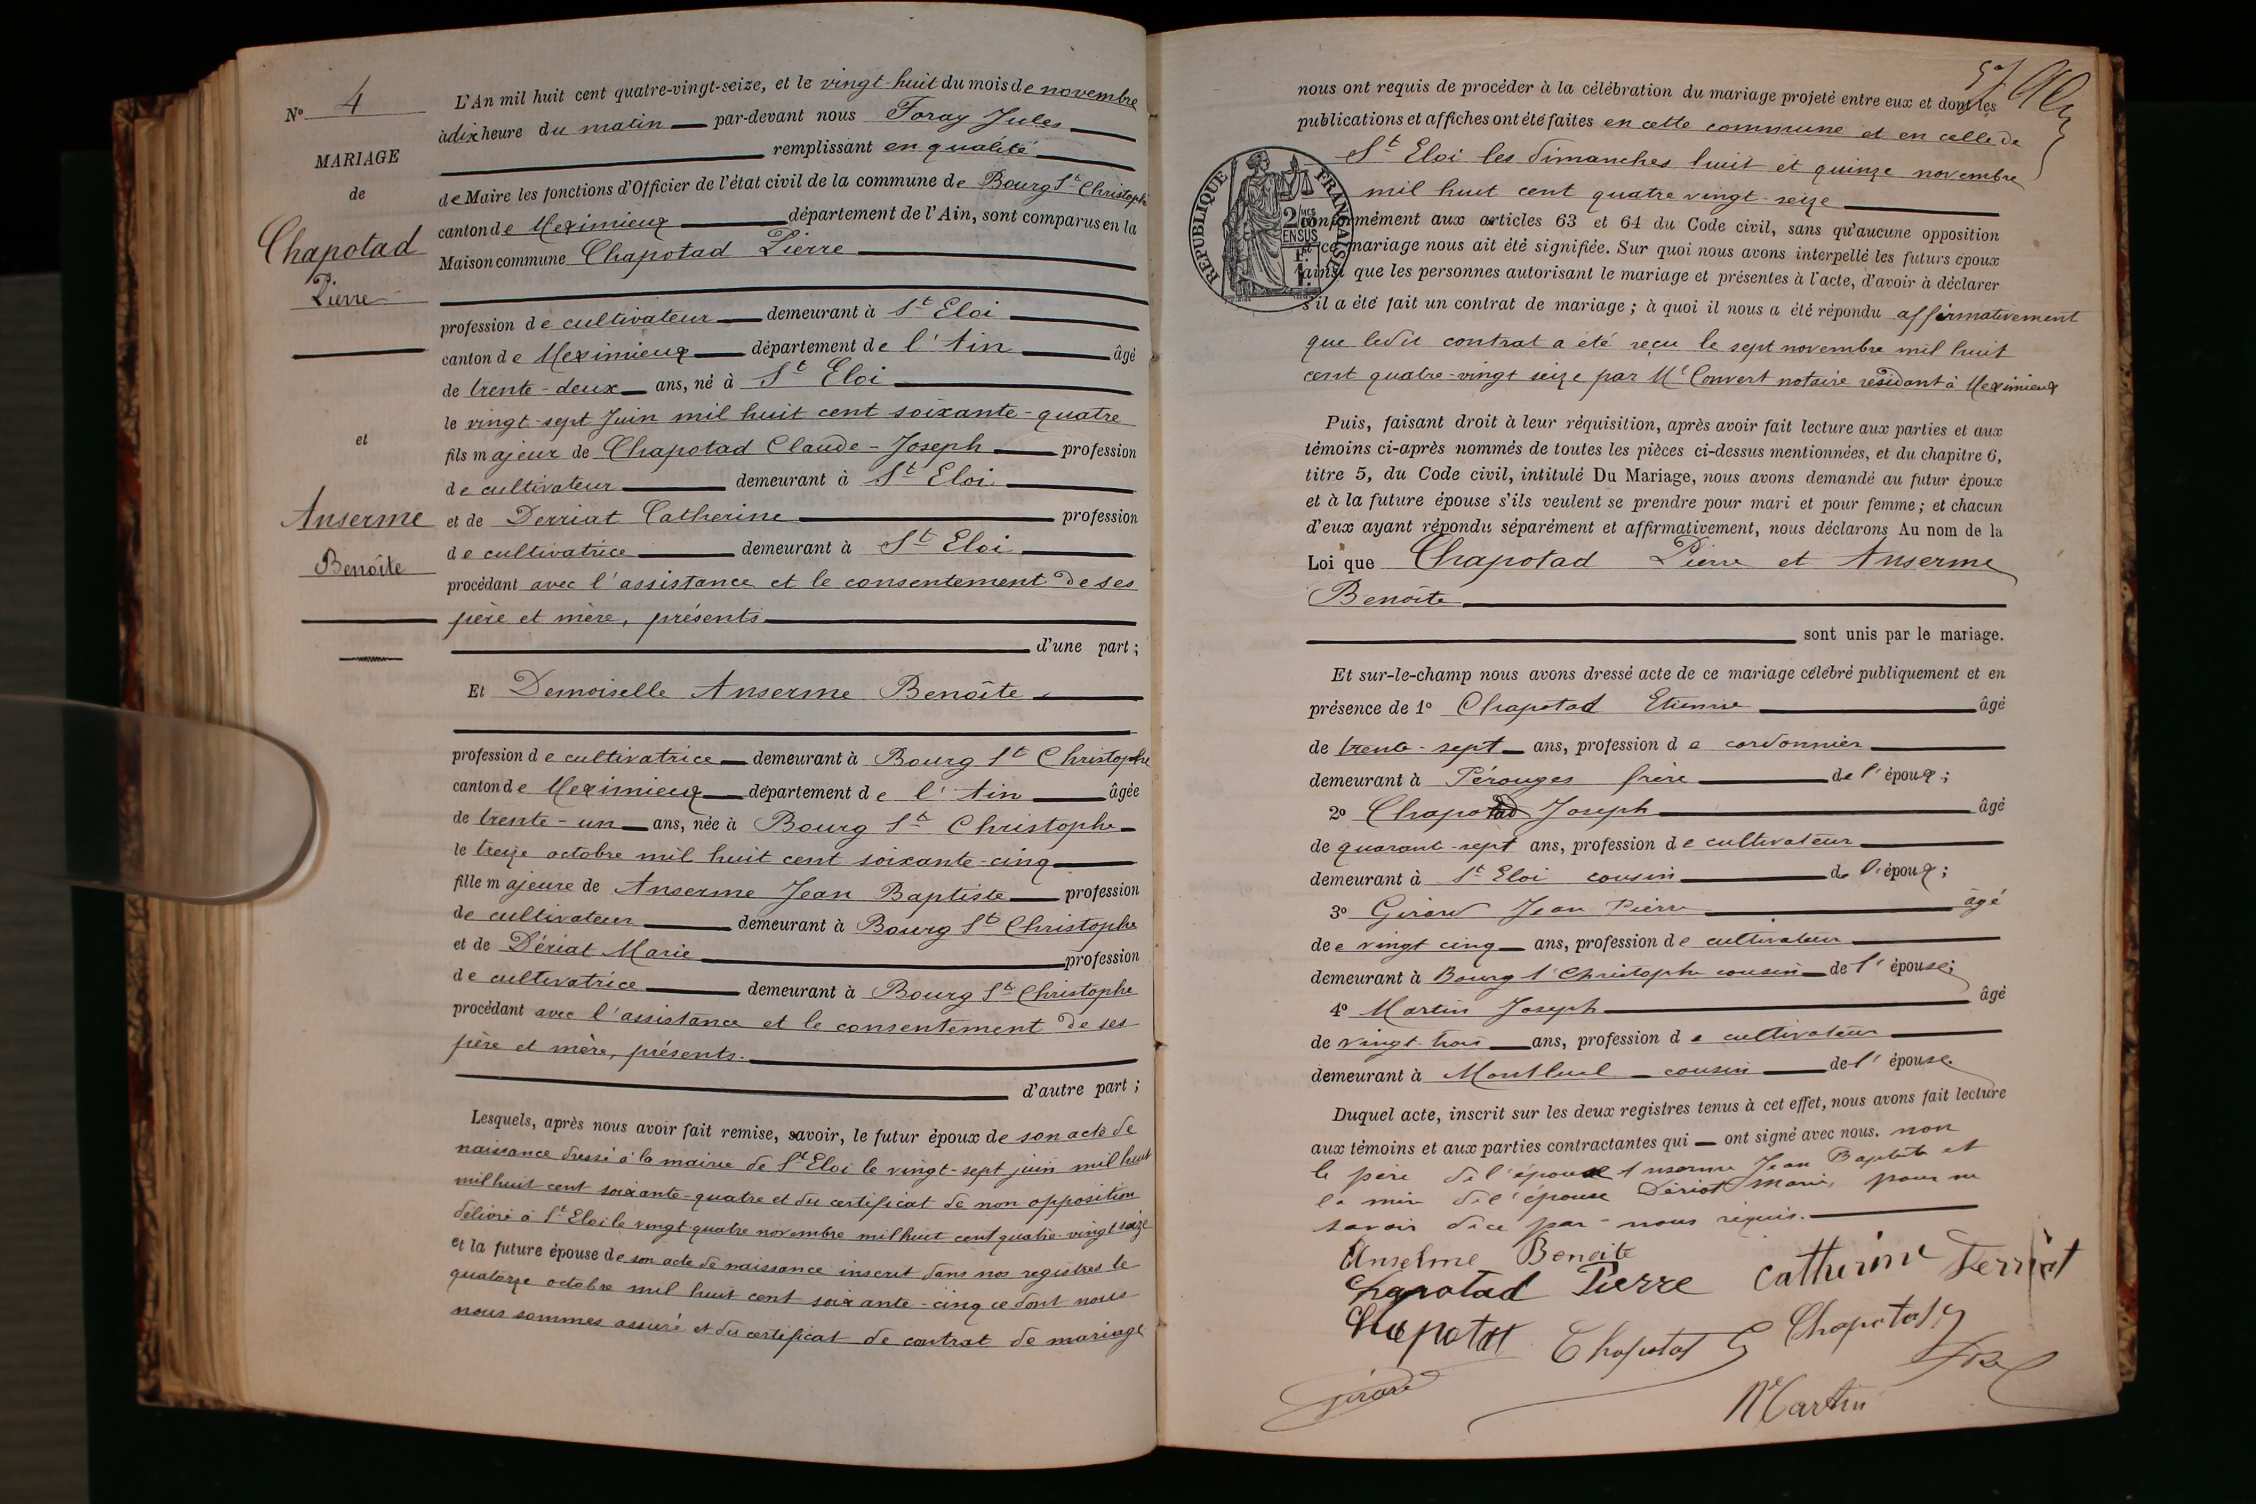 N° 4
MARIAGE
de
Chapotad
Pierre
et
Anserme
Benoîte
L'An mil huit cent quatre-vingt-seize, et le vingt-huit du mois de novembre
à dix heure du matin par-devant nous Foray Jules
remplissant en qualité
de Maire les fonctions d'Officier de l'état civil de la commune de Bourg St Christophe
canton de Meximieux département de l'Ain, sont comparus en la
Maison commune Chapotad Pierre
profession de cultivateur demeurant à St Eloi
canton de Meximieux département de l'Ain âgé
de trente-deux ans, né à St Eloi
le vingt-sept Juin mil huit cent soixante-quatre
fils majeur de Chapotad Claude-Joseph profession
de cultivateur demeurant à St Eloi
et de Derriat Catherine profession
de cultivatrice demeurant à St Eloi
procédant avec l'assistance et le consentement de ses
père et mère, présents
d'une part ;
Et Demoiselle Anserme Benoîte
profession de cultivatrice demeurant à Bourg St Christophe
canton de Meximieux département de l'Ain âgée
de trente-un ans, née à Bourg St Christophe
le treize octobre mil huit cent soixante-cinq
fille majeure de Anserme Jean Baptiste profession
de cultivateur demeurant à Bourg St Christophe
et de Dériat Marie profession
de cultivatrice demeurant à Bourg St Christophe
procédant avec l'assistance et le consentement de ses
père et mère, présents.
d'autre part ;
Lesquels, après nous avoir fait remise, savoir, le futur époux de son acte de
naissance dressé à la mairie de St Eloi le vingt-sept juin mil huit
mil huit cent soixante-quatre et du certificat de non opposition
délivré à St Eloi le vingt quatre novembre mil huit cent quatre-vingt seize
et la future épouse de son acte de naissance inscrit dans nos registres le
quatorze octobre mil huit cent soixante-cinq ce dont nous
nous sommes assuré et du certificat de contrat de mariage
nous ont requis de procéder à la célébration du mariage projeté entre eux et dont les
publications et affiches ont été faites en cette commune et en celle de
St Eloi les dimanches huit et quinze novembre
mil huit cent quatre vingt-seize
conformément aux articles 63 et 64 du Code civil, sans qu'aucune opposition
à ce mariage nous ait été signifiée. Sur quoi nous avons interpellé les futurs époux
ainsi que les personnes autorisant le mariage et présentes à l'acte, d'avoir à déclarer
s'il a été fait un contrat de mariage ; à quoi il nous a été répondu affirmativement
que ledit contrat a été reçu le sept novembre mil huit
cent quatre-vingt seize par Me Convert notaire résidant à Meximieux
RÉPUBLIQUE FRANÇAISE
Puis, faisant droit à leur réquisition, après avoir fait lecture aux parties et aux
témoins ci-après nommés de toutes les pièces ci-dessus mentionnées, et du chapitre 6,
titre 5, du Code civil, intitulé Du Mariage, nous avons demandé au futur époux
et à la future épouse s'ils veulent se prendre pour mari et pour femme ; et chacun
d'eux ayant répondu séparément et affirmativement, nous déclarons Au nom de la
Loi que Chapotad Pierre et Anserme
Benoîte
sont unis par le mariage.
Et sur-le-champ nous avons dressé acte de ce mariage célébré publiquement et en
présence de 1° Chapotad Etienne âgé
de trente-sept ans, profession de cordonnier
demeurant à Pérouges frère de l'époux ;
2° Chapotad Joseph âgé
de quarante-sept ans, profession de cultivateur
demeurant à St Eloi cousin de l'époux ;
3° Girard Jean Pierre âgé
de e vingt cinq ans, profession de cultivateur
demeurant à Bourg St Christophe cousin de l'épouse ;
4° Martin Joseph âgé
de vingt trois ans, profession de cultivateur
demeurant à Montluel cousin de l'épouse.
Duquel acte, inscrit sur les deux registres tenus à cet effet, nous avons fait lecture
aux témoins et aux parties contractantes qui ont signé avec nous. non
le père de l'épouse Anserme Jean Baptiste et
la mère de l'épouse Dériat Marie, pour ne
savoir de ce par-nous requis.
Anselme Benoite
Chapotad Pierre Catherine Derriat
Chapotat Chapotat Chapotat
Girard
Martin